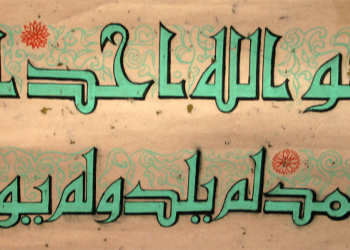 و الله احد ا
مد لم يلد ولم يو